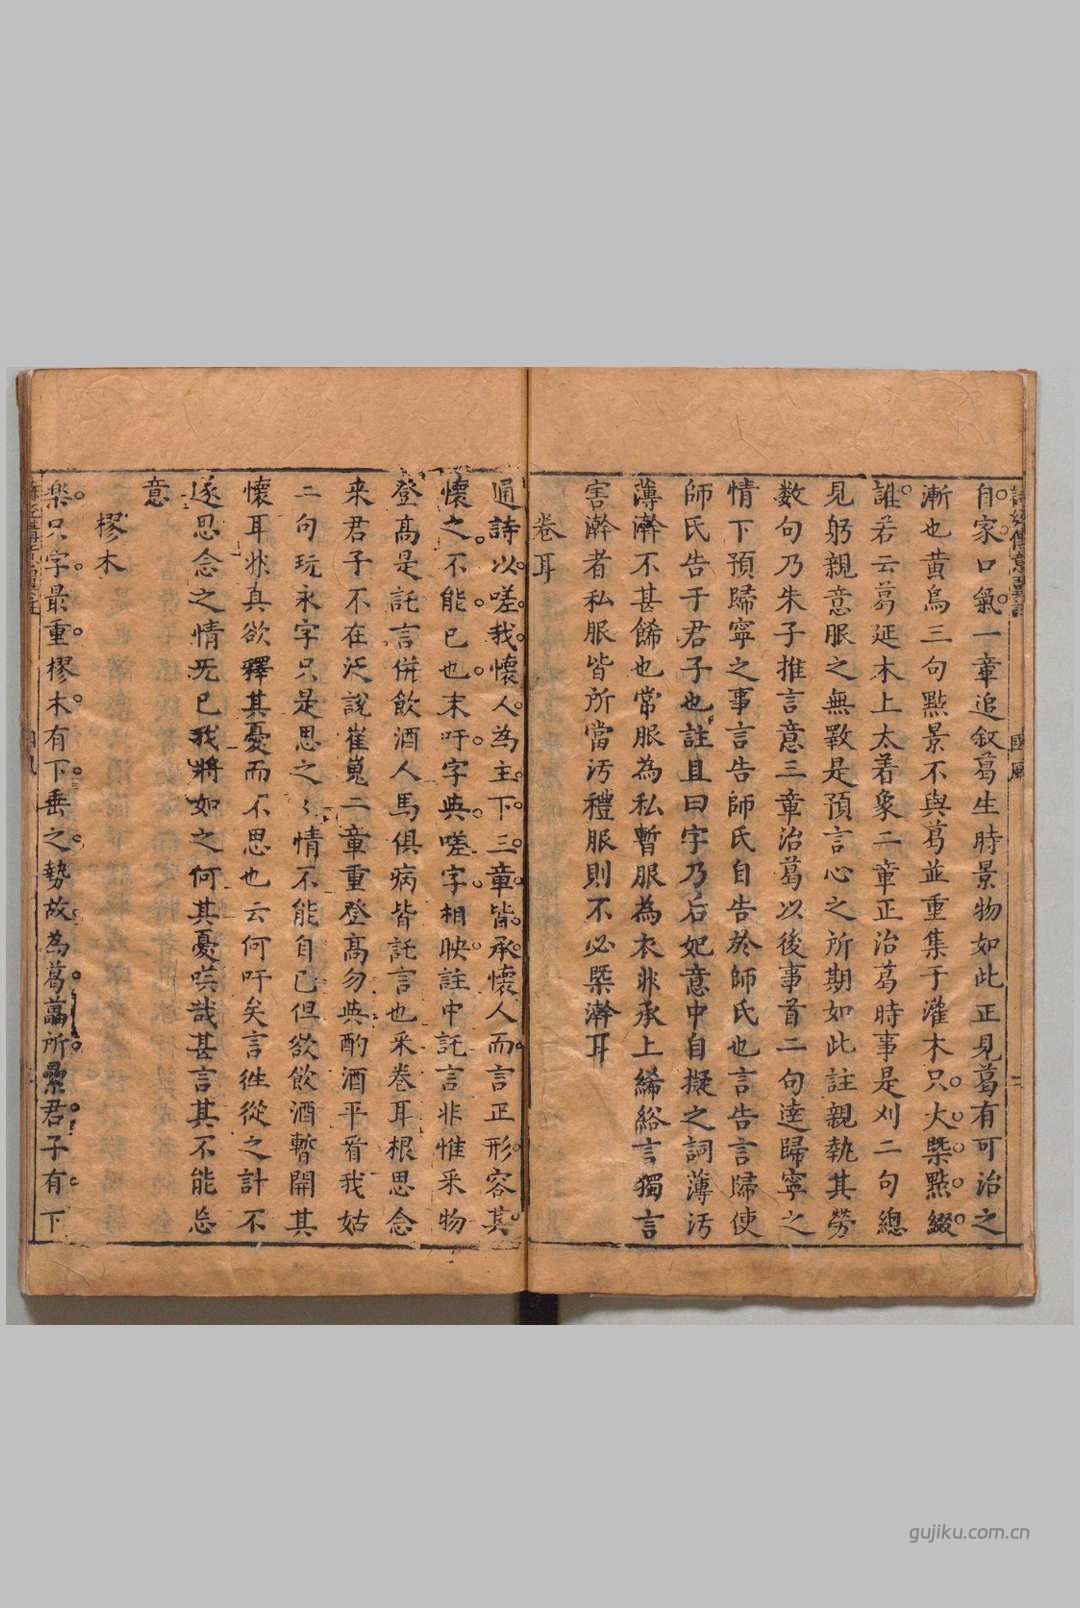 國風
二
自家口氣一章追叙葛生時景物如此正見葛有可治之
漸也黃鳥三句點景不與葛並重集于灌木只大槩點綴
誰若云葛延木上太着象二章正治葛時事是刈二句總
見躬親意服之無斁是預言心之所期如此註親執其勞
数句乃朱子推言意三章治葛以後事首二句逹歸寧之
情下預歸寧之事言告師氏自告於師氏也言告言歸使
師氏告于君子也註且曰字乃后妃意中自擬之詞薄污
薄澣不甚餙也常服為私暫服為衣非承上絺綌言獨言
害澣者私服皆所當污禮服則不必槩澣耳
卷耳
通詩以嗟我懷人為主下三章皆承懷人而言正形容其
懷之不能已也末吁字與嗟字相映註中託言非惟采物
登高是託言併飲酒人馬俱病皆託言也采卷耳根思念
来君子不在説崔嵬二章重登高勿與酌酒平看我姑
二句玩永字只是思之之情不能自已但欲飲酒暫開其
懷耳非真欲釋其憂而不思也云何吁矣言徃從之計不
遂思念之情无已我將如之何其憂嘆哉甚言其不能忘
意
樛木
楽只字最重樛木有下垂之勢故為葛藟所纍君子有下
gujiku.com.cn